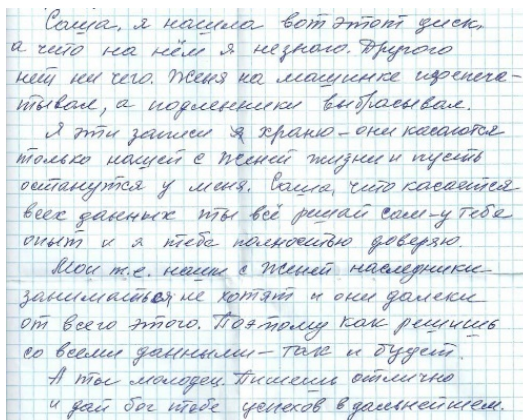 Саша, я нашла вот этот диск,
а что на нём я незнаю. Другого
нет ни чего. Женя на машинке перепеча-
тывал, а подленники выбрасывал.
Я эти записи я храню – они касаются
только нашей с Женей жизни и пусть
останутся у меня. Саша, что касается
всех данных ты всё решай сам – у тебя
опыт и я тебе полностью доверяю.
Мои т.е. наши с Женей наследники
заниматься не хотят и они далеки
от всего этого. Поэтому как решишь
со всеми данными – так и будет.
А ты молодец. Пишешь отлично
и дай бог тебе успехов в дальнейшем.